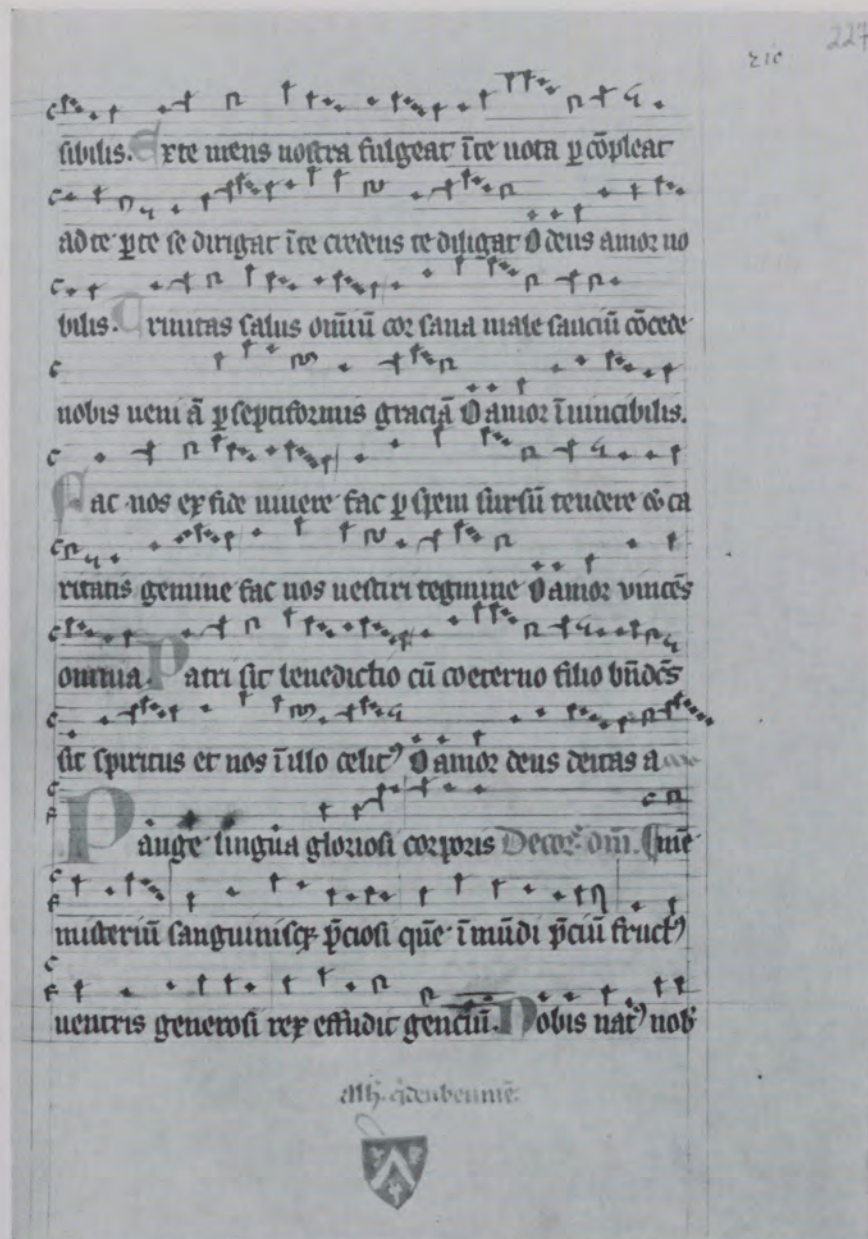 227
sibilis. Ex te mens nostra fulgeat īte uota ꝑ cōpleat
ad te ꝑ te se dirigat īte credens te diligat O deus amor no
bilis. Trinitas salus om̄iū cor sana male sauciū cōcede
nobis ueniā ꝑ septiformis graciā O amor īuincibilis.
Fac nos ex fide uiuere fac ꝑ spem sursū tendere ca
ritatis gemine fac nos uestiri tegmine O amor vincēs
omnia. Patri sit benedictio cū coeterno filio bn̄dcs̄
sit spiritus et nos ī illo celitꝰ O amor deus deitas a
Pange lingua gloriosi corporis De corꝑ. dn̄i.
misteriū sanguinisqꝫ p̄ciosi quē ī mūdi p̄ciū fructꝰ
uentris generosi rex effudit genciū. Nobis natꝰ nob̄